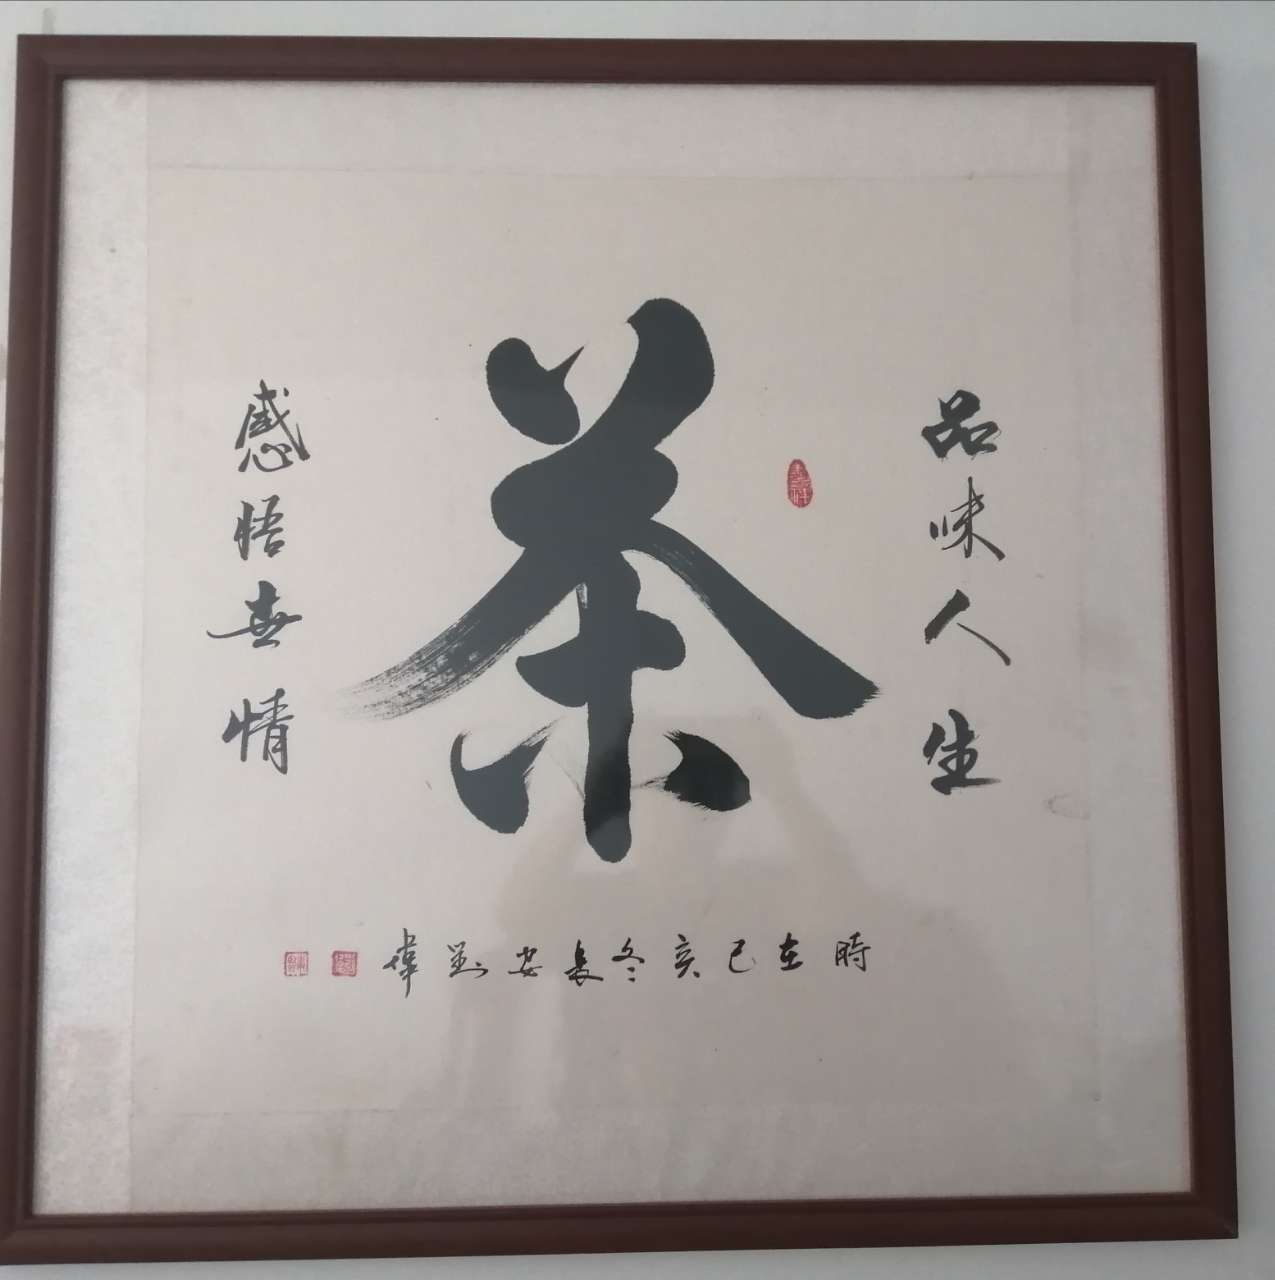 品味人生
茶
感悟世情
時在己亥冬長安劉偉